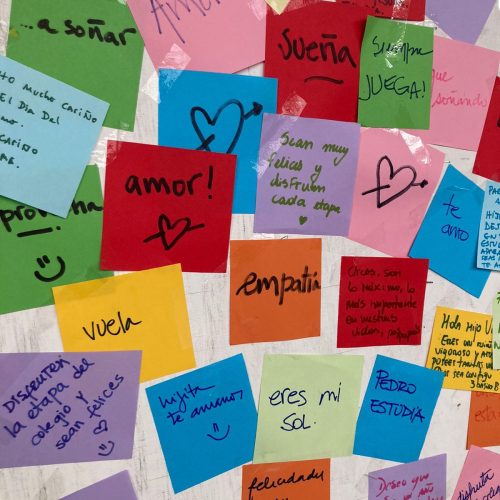 ...a soñar
Amor
Sueña
Siempre
JUEGA!
que
soñando
Mucho Cariño
El Dia Del
Cariño
amor!
Sean muy
felices y
disfruten
cada etapa
te
amo
empatia
Chicos, son
lo máximo, lo
más importante
en nuestras
vidas,
vuela
Hola Hijo
Eres un
vigoroso y
DISFRUTEN
la etapa del
colegio y
sean felices
hijita
te amamos
eres mi
sol.
PEDRO
ESTUDIA
felicidades
Deseo que
disfruta